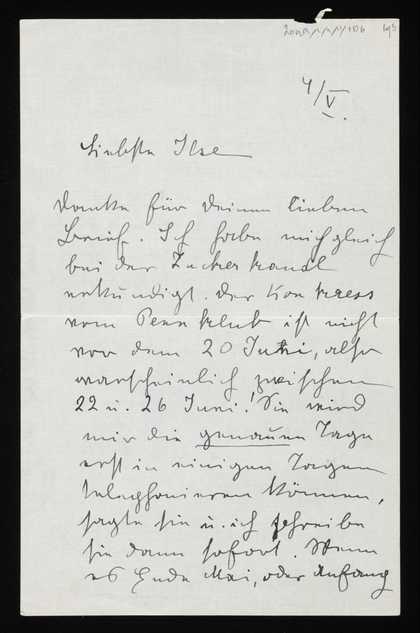 4/V.
Liebste Ilse
Danke für Deinen lieben
Brief. Ich habe mich gleich
bei der Zuckerkandl
erkundigt. Der Konkress
vom Penn klub ist nicht
vor dem 20 Juni, also
warscheinlich zwischen
22 u. 26 Juni! Sie wird
mir die genauen Tage
erst in einigen Tagen
telephonieren können,
sagte sie u. ich schreibe
sie dann sofort. Wenn
es Ende Mai, oder Anfang